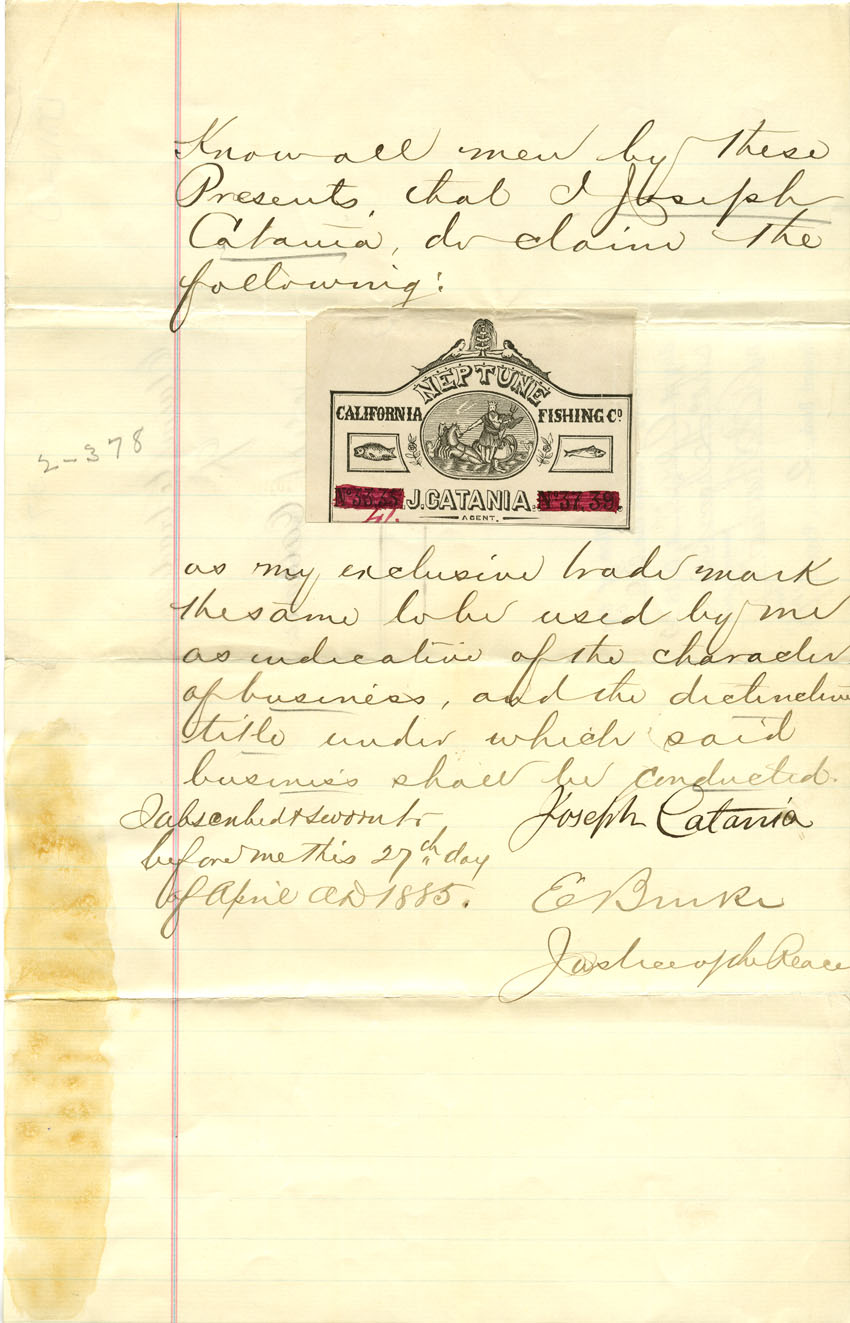 Know all men by these
Presents, that I Joseph
Catania, do claim the
following:
NEPTUNE
CALIFORNIA FISHING Co
No 33.35 J. CATANIA. No 37.39.
41.
AGENT.
2-378
as my exclusive trade mark
the same to be used by me
as indicative of the character
of business, and the distinctive
title under which said
business shall be conducted.
Subscribed & sworn to Joseph Catania
before me this 27th day
of April AD 1885. E Burke
Justice of the Peace